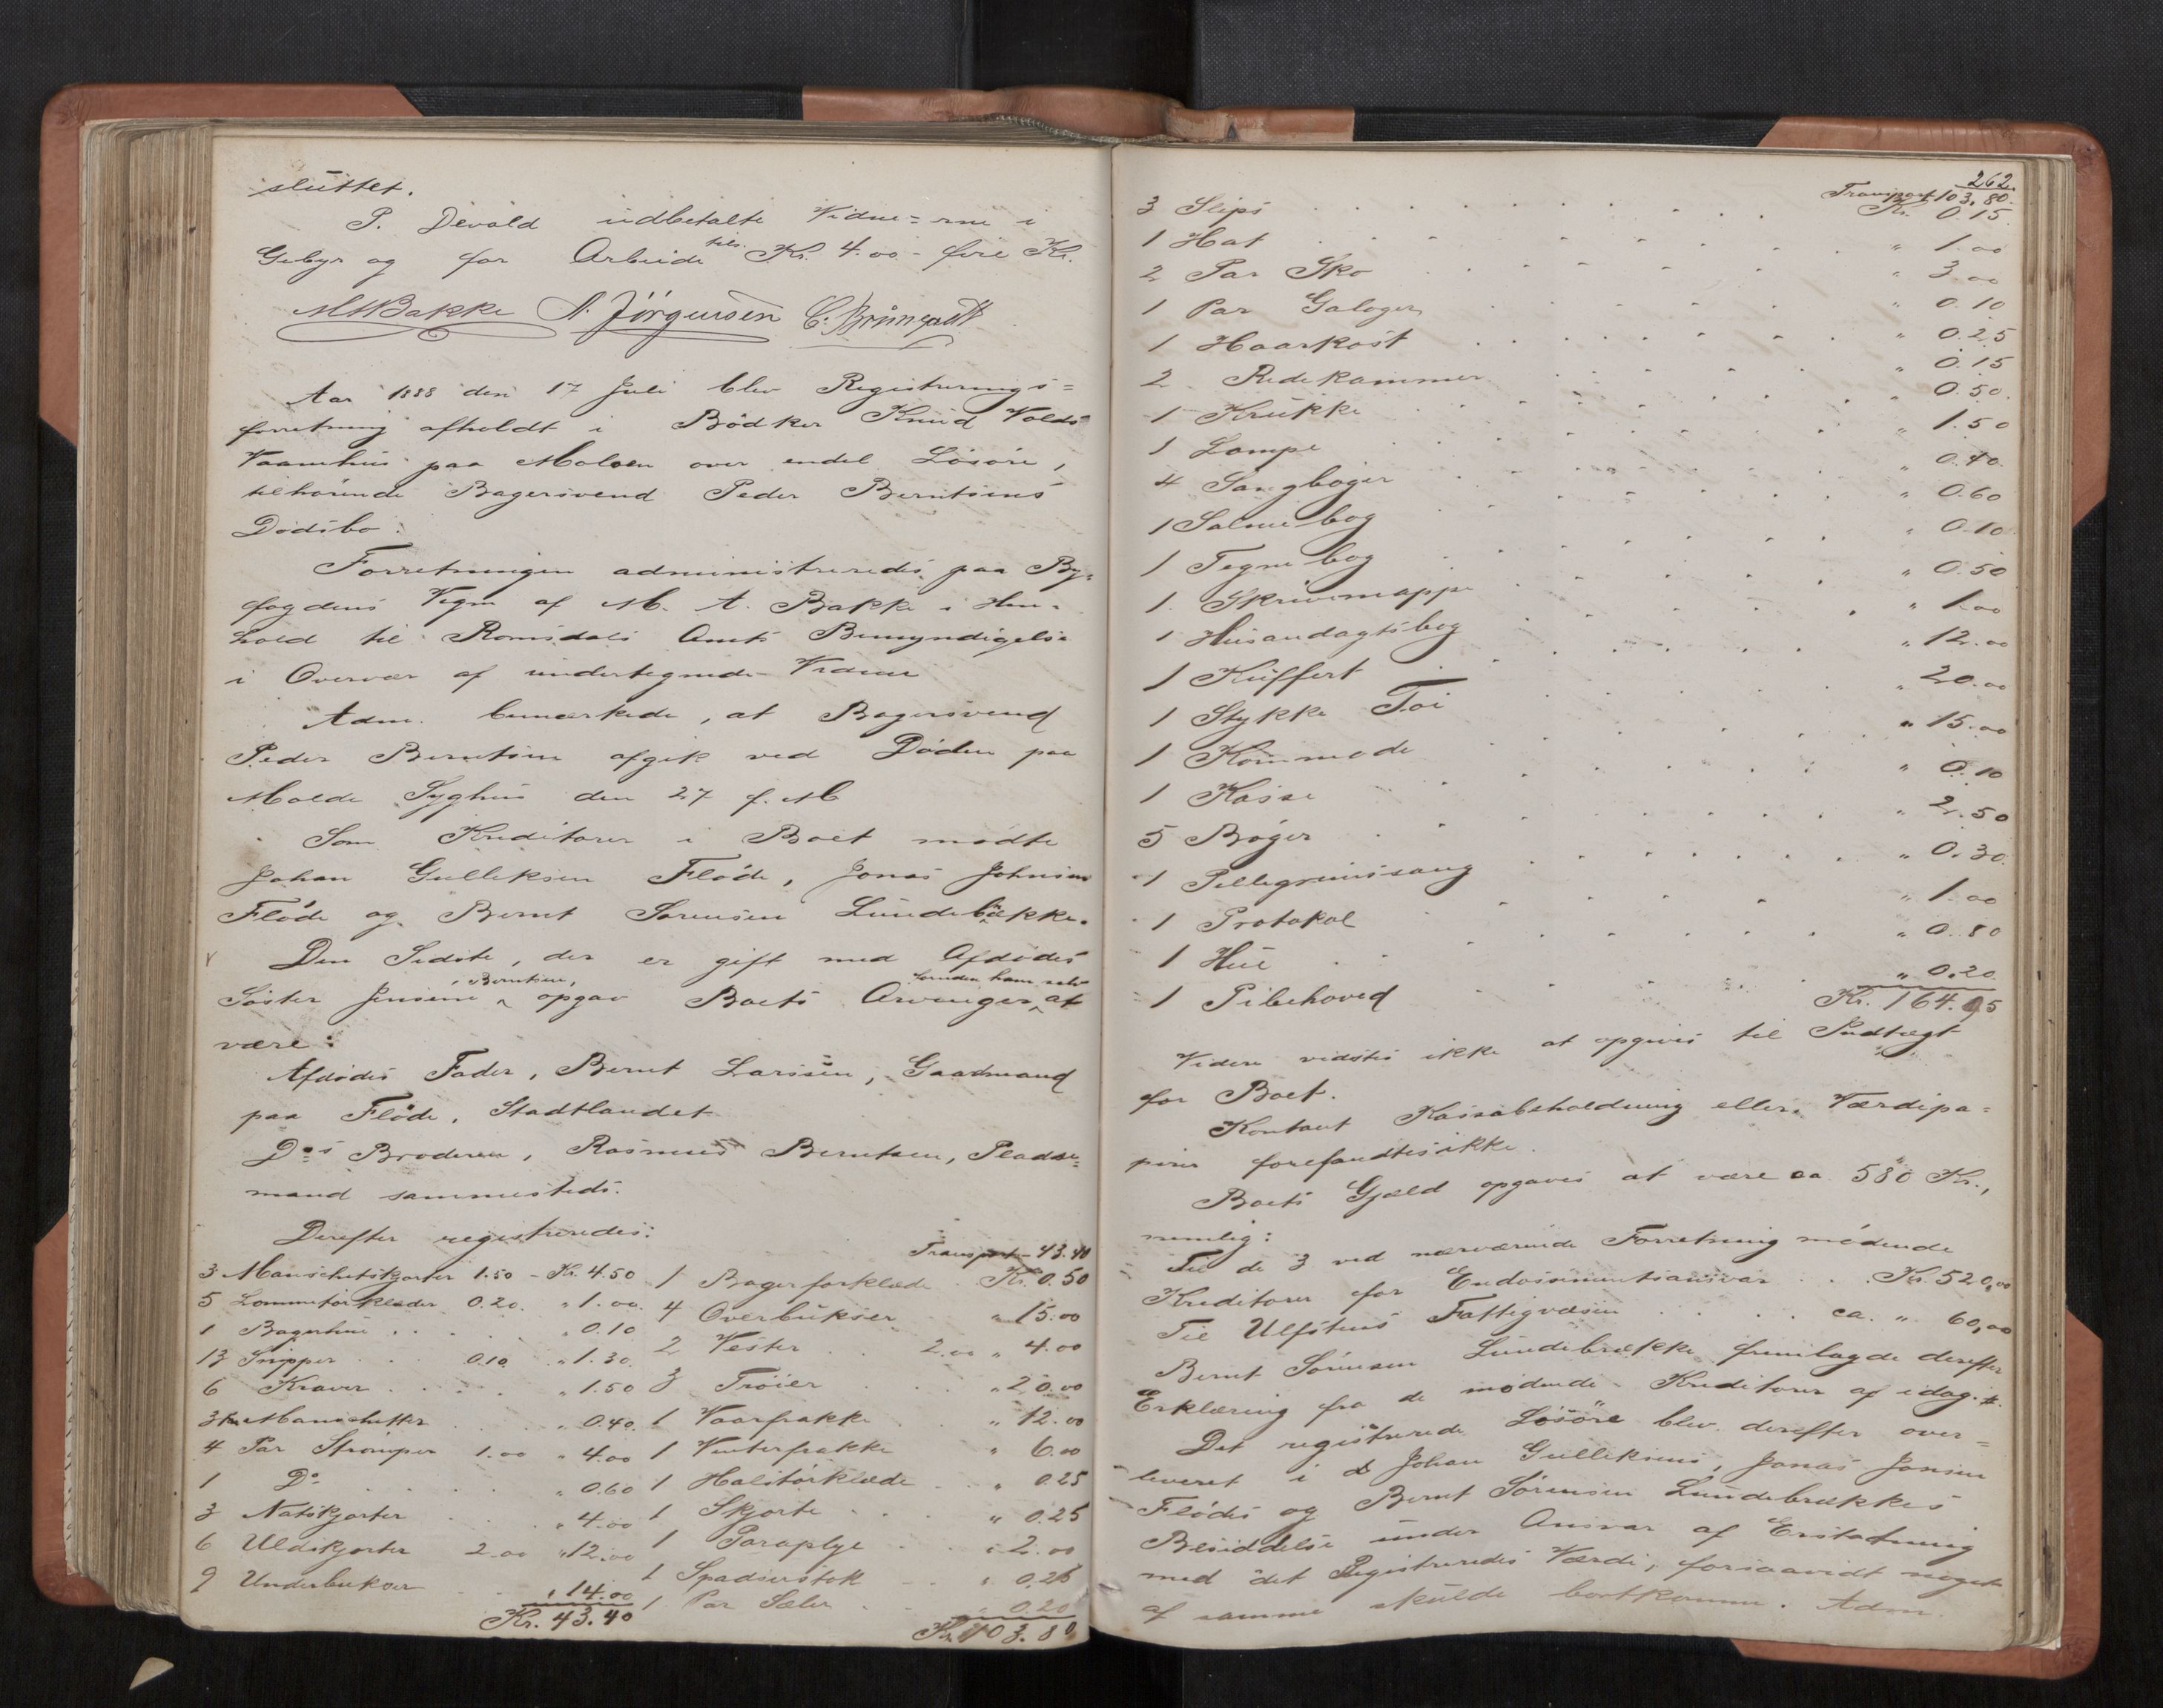 sluttet.
P. Devold udbetalte Vidne=rne i
Gebyr og for Arbeide tils. Kr. 4.00 - fire Kr.
M A Bakke A. Jörgensen C.
Aar 1888 den 17 Juli blev Registrerings=
forretning afholdt i Bødker Knud Volds
Vaanehus paa Molden over endel Løsøre,
tilhørende Bagersvend Peder Berntsens
Dødsbo.
Forretningen administreredes paa By=
fogdens Vegne af M. A. Bakke i Hen=
hold til Romsdals Amts Bemyndigelse
i Overvær af undertegnede Vidner
Adm. bemærkede, at Bagersvend
Peder Berntsen afgik ved Døden paa
Molde Syghus den 27 f. M
Som Kreditorer i Boet mødte
Johan Gulleksen Fløde, Jonas Johnsen
Fløde og Bernt Sørensen Lundebrække.
Den Sidste, der er gift med Afdødes
Søster Jensine Berntsen, opgav Boets Arvinger foruden ham selv at
være:
Afdødes Fader, Bernt Larsen, Gaardmand
paa Fløde, Stadtlandet
Do's Broderen, Rasmus Berntsen, Plads=
mand sammesteds.
Derefter registreredes:
3 Manschetskjorter 1.50 - Kr. 4.50
5 Lommetørklæder 0.20. " 1.00.
1 Bagerhue . . " 0.10
13 Snipper . . 0.10 " 1.30
6 Kraver . . . " 1.50
3 Par Manschetter . . " 0.40
4 Par Strømper 1.00 " 4.00
1 Do. . . . " 0.60
3 Natskjorter . . " 4.00
6 Uldskjorter 2.00 " 12.00
9 Underbukser . . " 14.00
Kr. 43.40
Transport - 43.40
1 Bagerforklæde . Kr. 0.50
4 Overbukser " 15.00
2 Vester . . 2.00 " 4.00
3 Trøier . . " 20.00
1 Vaarfrakke . . " 12.00
1 Vinterfrakke " 6.00
1 Halstørklæde . . " 0.25
1 Skjorte . . . " 0.25
1 Paraplye . . " 2.00
1 Spadserstok . . " 0.25
1 Par Seler . . " 0.20
Kr. 103.80
262.
Transport 103.80.
3 Slips . . . Kr. 0.15
1 Hat . . . " 1.00
2 Par Sko . . . " 3.00
1 Par Galoger . . . " 0.10
1 Haarkost . . . " 0.25
2 Redekammer . . . " 0.15
1 Krukke . . . " 0.50.
1 Lampe . . . " 1.50
4 Sangbøger . . . " 0.40.
1 Salmebog . . . " 0.60
1 Tegnebog . . . " 0.10
1 Skrivemappe . . . " 0.50
1 Husandagtsbog . . . " 1.00
1 Kuffert . . . " 12.00
1 Stykke Tøi . . . " 20.00
1 Kommode . . . " 15.00
1 Kasse . . . " 0.10
5 Bøger . . . " 2.50
1 Pillegrimssang . . . " 0.30.
1 Protokol . . . " 1.00
1 Hue . . . " 0.80
1 Pibehoved . . . " 0.20
Kr. 164.95
Videre vidstes ikke at opgives til Indtægt
for Boet.
Kontant Kassabeholdning eller Værdipa=
pirer forefandtes ikke.
Boets Gjæld opgaves at være ca 580 Kr.,
nemlig:
Til de 3 ved nærværende Forretning mødende
Kreditorer for Endossementsansvar . . . Kr. 520,00
Til Ulfstens Fattigvæsen . . . ca. " 60,00
Bernt Sørensen Lundebrække fremlagde derefter
Erklæring fra de mødende Kreditorer af idag.
Det registrerede Løsøre blev derefter over=
leveret i Johan Gulleksens, Jonas Jonsen
Flødes og Bernt Sørensen Lundebrækkes
Besiddelse under Ansvar af Erstatning
med det Registreredes Værdi, forsaavidt noget
af samme skulde bortkomme. Adm.